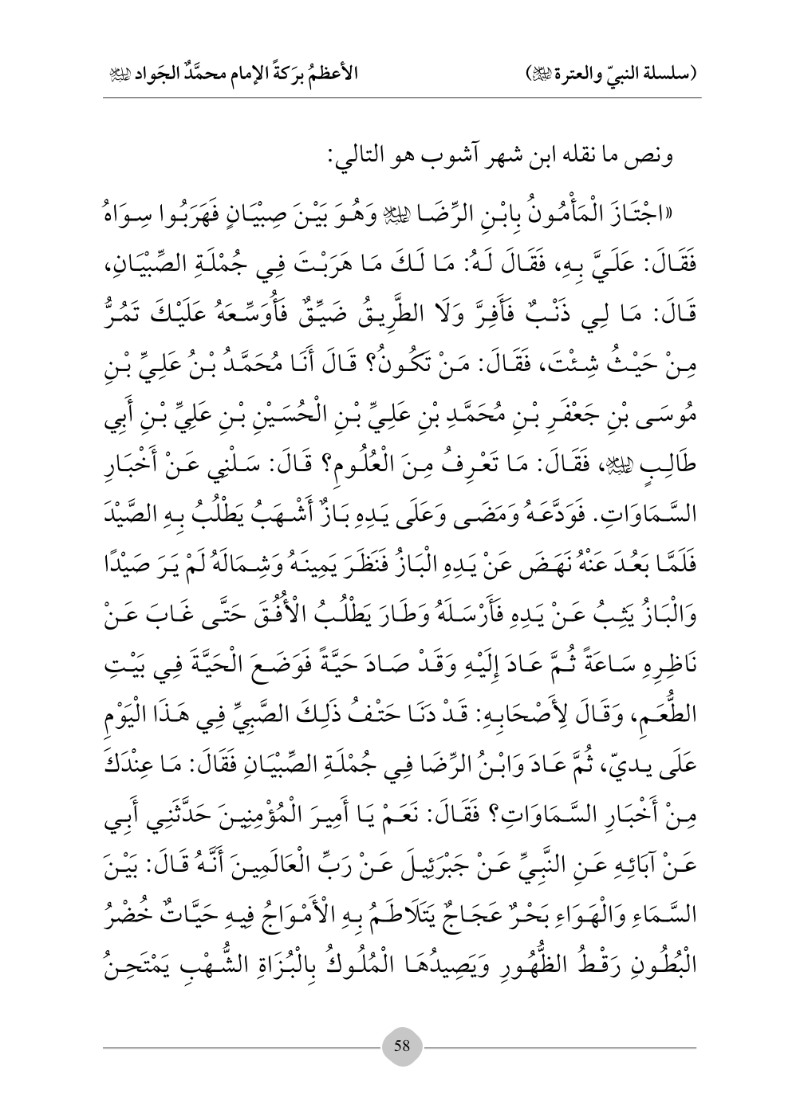 (سلسلة النبيّ والعترة ﷺ) الأعظمُ برَكةً الإمام محمَّدٌ الجَواد عليه السلام
ونص ما نقله ابن شهر آشوب هو التالي:
«اجْتَازَ الْمَأْمُونُ بِابْنِ الرِّضَا عليه السلام وَهُوَ بَيْنَ صِبْيَانٍ فَهَرَبُوا سِوَاهُ
فَقَالَ: عَلَيَّ بِهِ، فَقَالَ لَهُ: مَا لَكَ مَا هَرَبْتَ فِي جُمْلَةِ الصِّبْيَانِ،
قَالَ: مَا لِي ذَنْبٌ فَأَفِرَّ وَلَا الطَّرِيقُ ضَيِّقٌ فَأُوَسِّعَهُ عَلَيْكَ تَمُرُّ
مِنْ حَيْثُ شِئْتَ، فَقَالَ: مَنْ تَكُونُ؟ قَالَ أَنَا مُحَمَّدُ بْنُ عَلِيِّ بْنِ
مُوسَى بْنِ جَعْفَرِ بْنِ مُحَمَّدِ بْنِ عَلِيِّ بْنِ الْحُسَيْنِ بْنِ عَلِيِّ بْنِ أَبِي
طَالِبٍ عليه السلام، فَقَالَ: مَا تَعْرِفُ مِنَ الْعُلُومِ؟ قَالَ: سَلْنِي عَنْ أَخْبَارِ
السَّمَاوَاتِ. فَوَدَّعَهُ وَمَضَى وَعَلَى يَدِهِ بَازٌ أَشْهَبُ يَطْلُبُ بِهِ الصَّيْدَ
فَلَمَّا بَعُدَ عَنْهُ نَهَضَ عَنْ يَدِهِ الْبَازُ فَنَظَرَ يَمِينَهُ وَشِمَالَهُ لَمْ يَرَ صَيْدًا
وَالْبَازُ يَثِبُ عَنْ يَدِهِ فَأَرْسَلَهُ وَطَارَ يَطْلُبُ الْأُفُقَ حَتَّى غَابَ عَنْ
نَاظِرِهِ سَاعَةً ثُمَّ عَادَ إِلَيْهِ وَقَدْ صَادَ حَيَّةً فَوَضَعَ الْحَيَّةَ فِي بَيْتِ
الطُّعَمِ، وَقَالَ لِأَصْحَابِهِ: قَدْ دَنَا حَتْفُ ذَلِكَ الصَّبِيِّ فِي هَذَا الْيَوْمِ
عَلَى يديّ، ثُمَّ عَادَ وَابْنُ الرِّضَا فِي جُمْلَةِ الصِّبْيَانِ فَقَالَ: مَا عِنْدَكَ
مِنْ أَخْبَارِ السَّمَاوَاتِ؟ فَقَالَ: نَعَمْ يَا أَمِيرَ الْمُؤْمِنِينَ حَدَّثَنِي أَبِي
عَنْ آبَائِهِ عَنِ النَّبِيِّ عَنْ جَبْرَئِيلَ عَنْ رَبِّ الْعَالَمِينَ أَنَّهُ قَالَ: بَيْنَ
السَّمَاءِ وَالْهَوَاءِ بَحْرٌ عَجَاجٌ يَتَلَاطَمُ بِهِ الْأَمْوَاجُ فِيهِ حَيَّاتٌ خُضْرُ
الْبُطُونِ رَقْطُ الظُّهُورِ وَيَصِيدُهَا الْمُلُوكُ بِالْبُزَاةِ الشُّهْبِ يَمْتَحِنُ
58